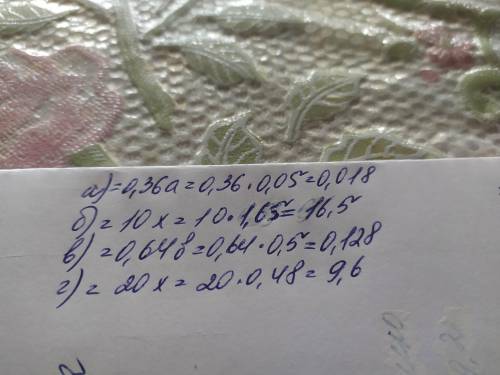 а) = 0,36а = 0,36 · 0,05 = 0,018
б) = 10х = 10 · 1,65 = 16,5
в) = 0,64в = 0,64 · 0,5 = 0,128
г) = 20х = 20 · 0,48 = 9,6